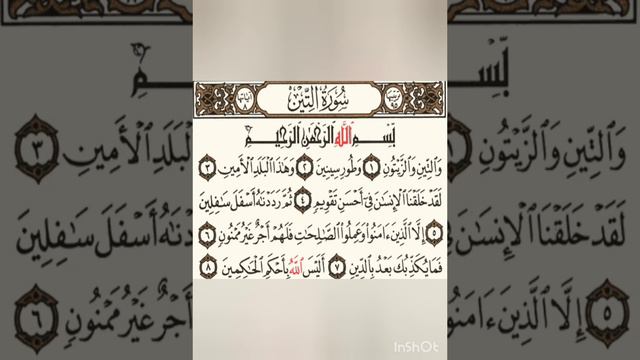 ترتيبها ٩٥ سُورَةُ التِّينِ آياتها ٨
بِسْمِ اللَّهِ الرَّحْمَٰنِ الرَّحِيمِ
وَالتِّينِ وَالزَّيْتُونِ ١ وَطُورِ سِينِينَ ٢ وَهَٰذَا الْبَلَدِ الْأَمِينِ ٣
لَقَدْ خَلَقْنَا الْإِنسَانَ فِي أَحْسَنِ تَقْوِيمٍ ٤ ثُمَّ رَدَدْنَاهُ أَسْفَلَ سَافِلِينَ
٥ إِلَّا الَّذِينَ ءَامَنُوا وَعَمِلُوا الصَّالِحَاتِ فَلَهُمْ أَجْرٌ غَيْرُ مَمْنُونٍ ٦
فَمَا يُكَذِّبُكَ بَعْدُ بِالدِّينِ ٧ أَلَيْسَ اللَّهُ بِأَحْكَمِ الْحَاكِمِينَ ٨
InShOt